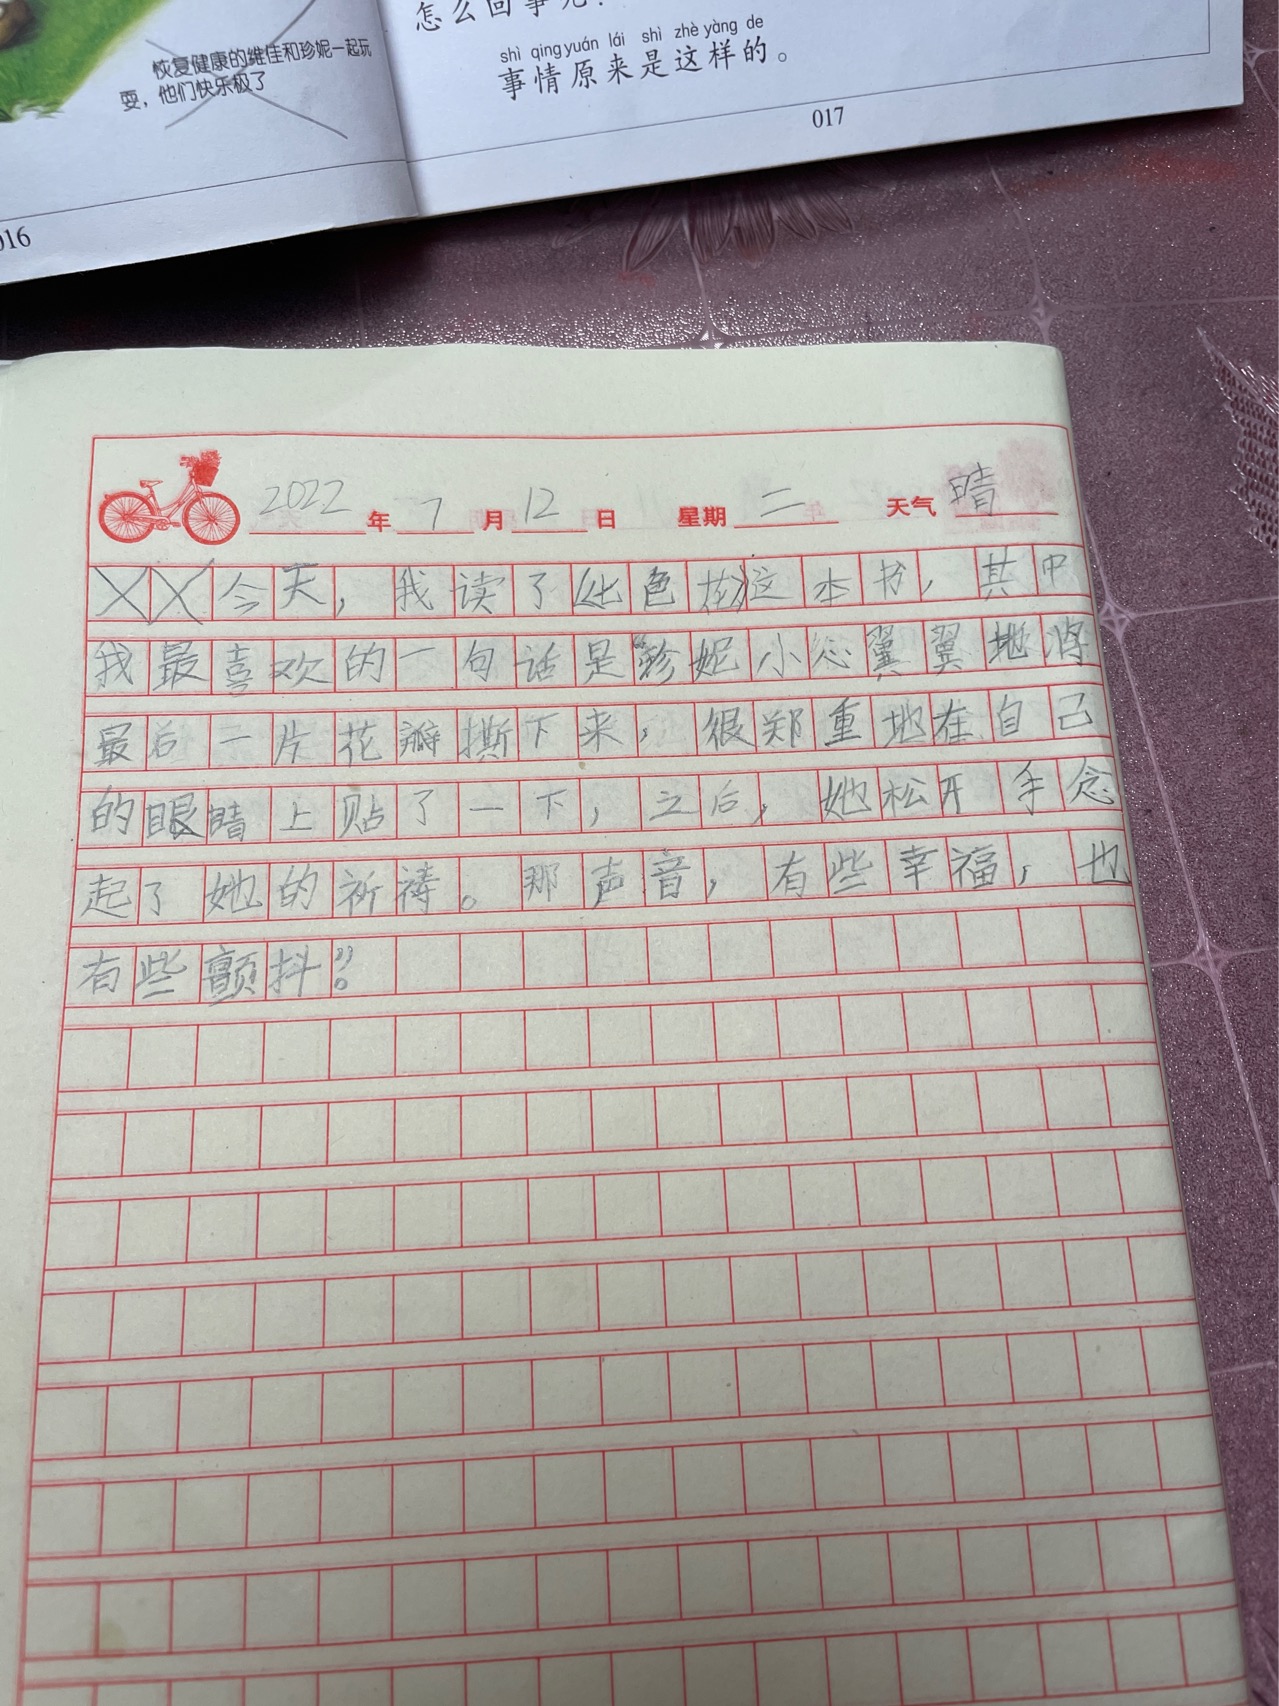 怎么回事儿?
shì qing yuán lái shì zhè yàng de
事情原来是这样的。
恢复健康的维佳和珍妮一起玩
耍，他们快乐极了
017
016
2022年7月12日 星期二 天气晴
XX今天，我读了《七色花》这本书，其中
我最喜欢的一句话是“珍妮小心翼翼地将
最后一片花瓣撕下来，很郑重地在自己
的眼睛上贴了一下，之后，她松开手念
起了她的祈祷。那声音，有些幸福，也
有些颤抖”。